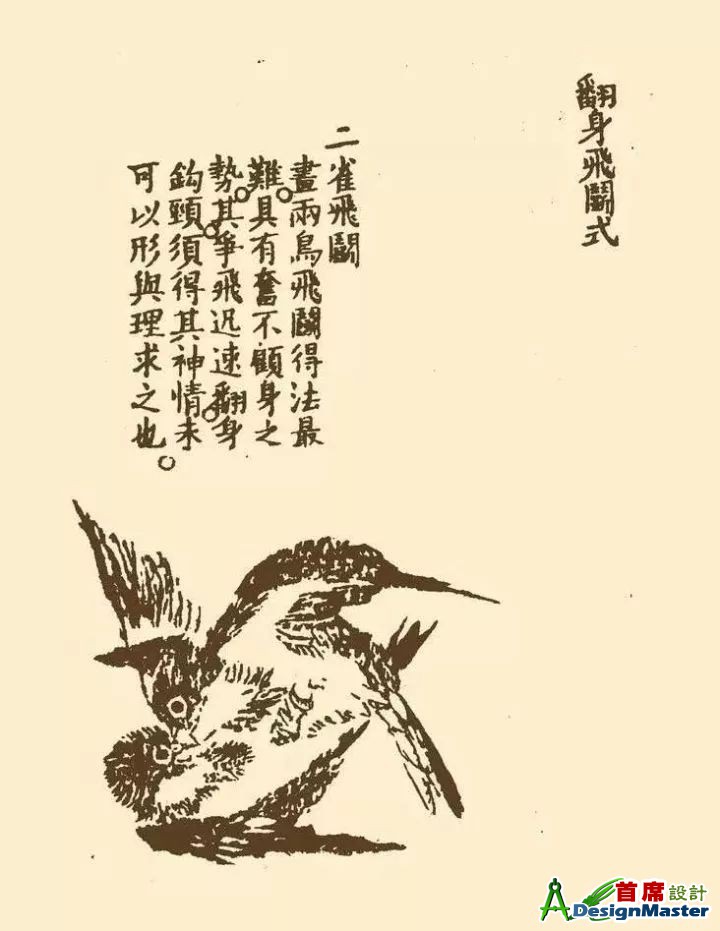 翻身飛鬭式
二雀飛鬭
畫兩鳥飛鬭得法最
難。具有奮不顧身之
勢。其爭飛迅速。翻身
鈎頸。須得其神情。未
可以形與理求之也。
首席設計
DesignMaster